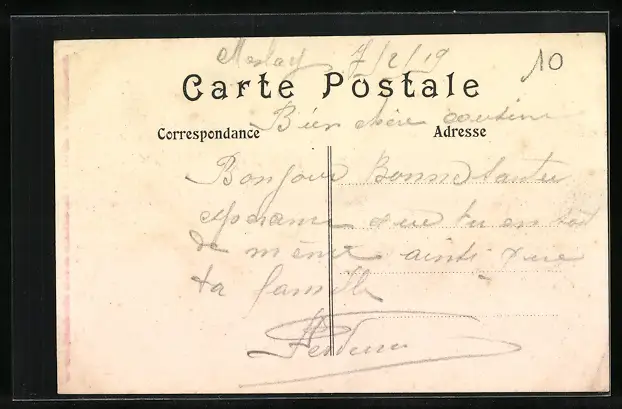 Meslay 7/2/19
10
Carte Postale
Bien chère cousine
Correspondance
Adresse
Bonjour Bonne Santée
esperant que tu en soit
de même ainsi que
ta famille